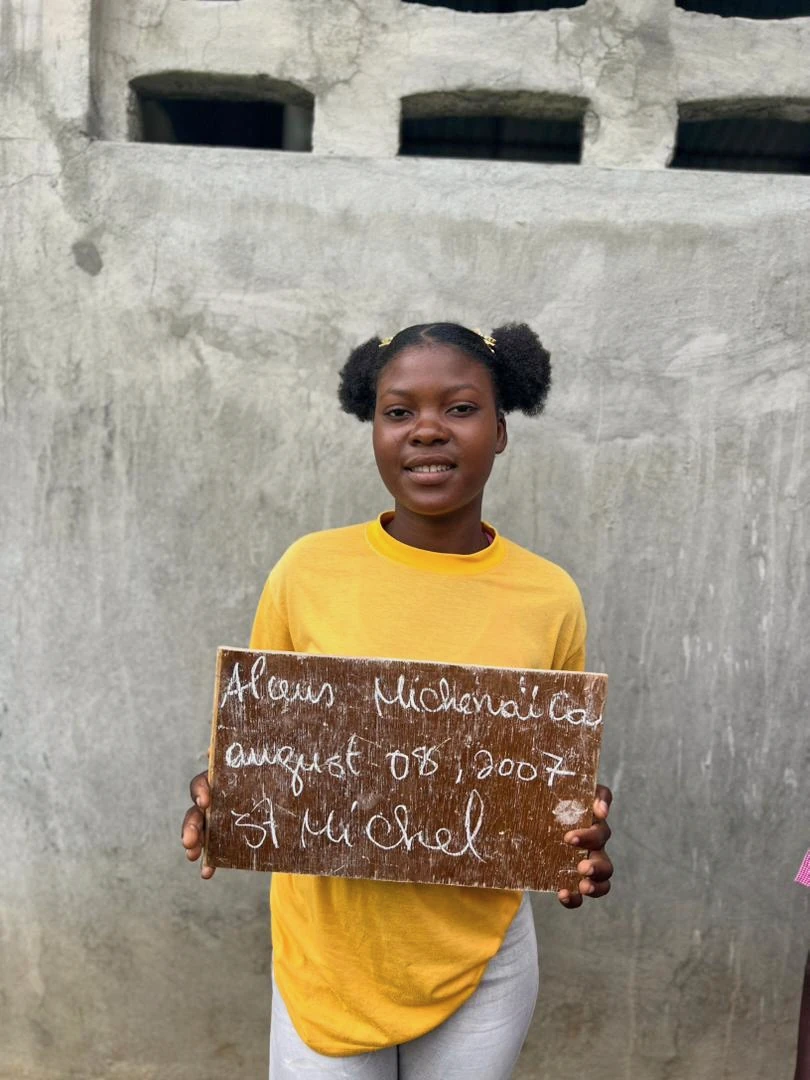 Alceus Michenaïca
august 08, 2007
St Michel